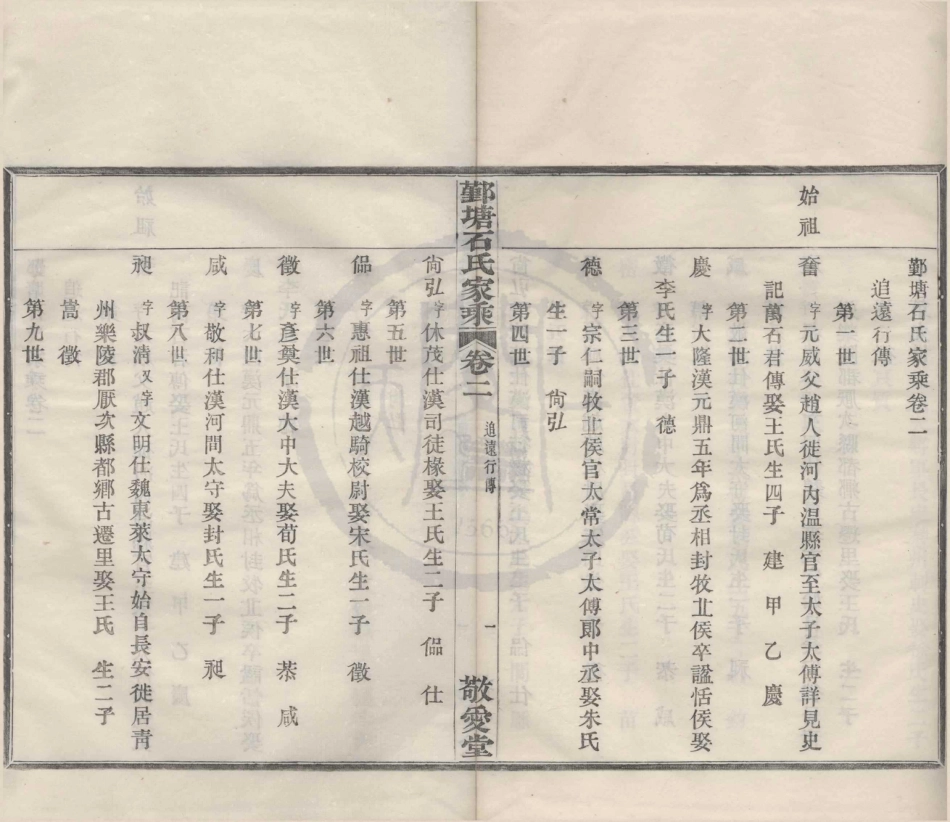 鄞塘石氏家乘卷二
追遠行傳
第一世
始祖
奮 字元威父趙人徙河內温縣官至太子太傅詳見史
記萬石君傳娶王氏生四子 建 甲 乙 慶
第二世
慶 字大隆漢元鼎五年爲丞相封牧丘侯卒諡恬侯娶
李氏生一子 德
第三世
德 字宗仁嗣牧丘侯官太常太子太傅郎中丞娶朱氏
生一子 尙弘
第四世
鄞塘石氏家乘 卷二 追遠行傳 一 敬愛堂
尙弘 字休茂仕漢司徒椽娶王氏生二子 偘 仕
第五世
偘 字惠祖仕漢越騎校尉娶宋氏生一子 徵
第六世
徵 字彥奠仕漢大中大夫娶荀氏生二子 恭 咸
第七世
咸 字敬和仕漢河間太守娶封氏生一子 昶
第八世
昶 字叔清又字文明仕魏東萊太守始自長安徙居靑
州樂陵郡厭次縣都鄉古遷里娶王氏 生二子
嵩 徵
第九世